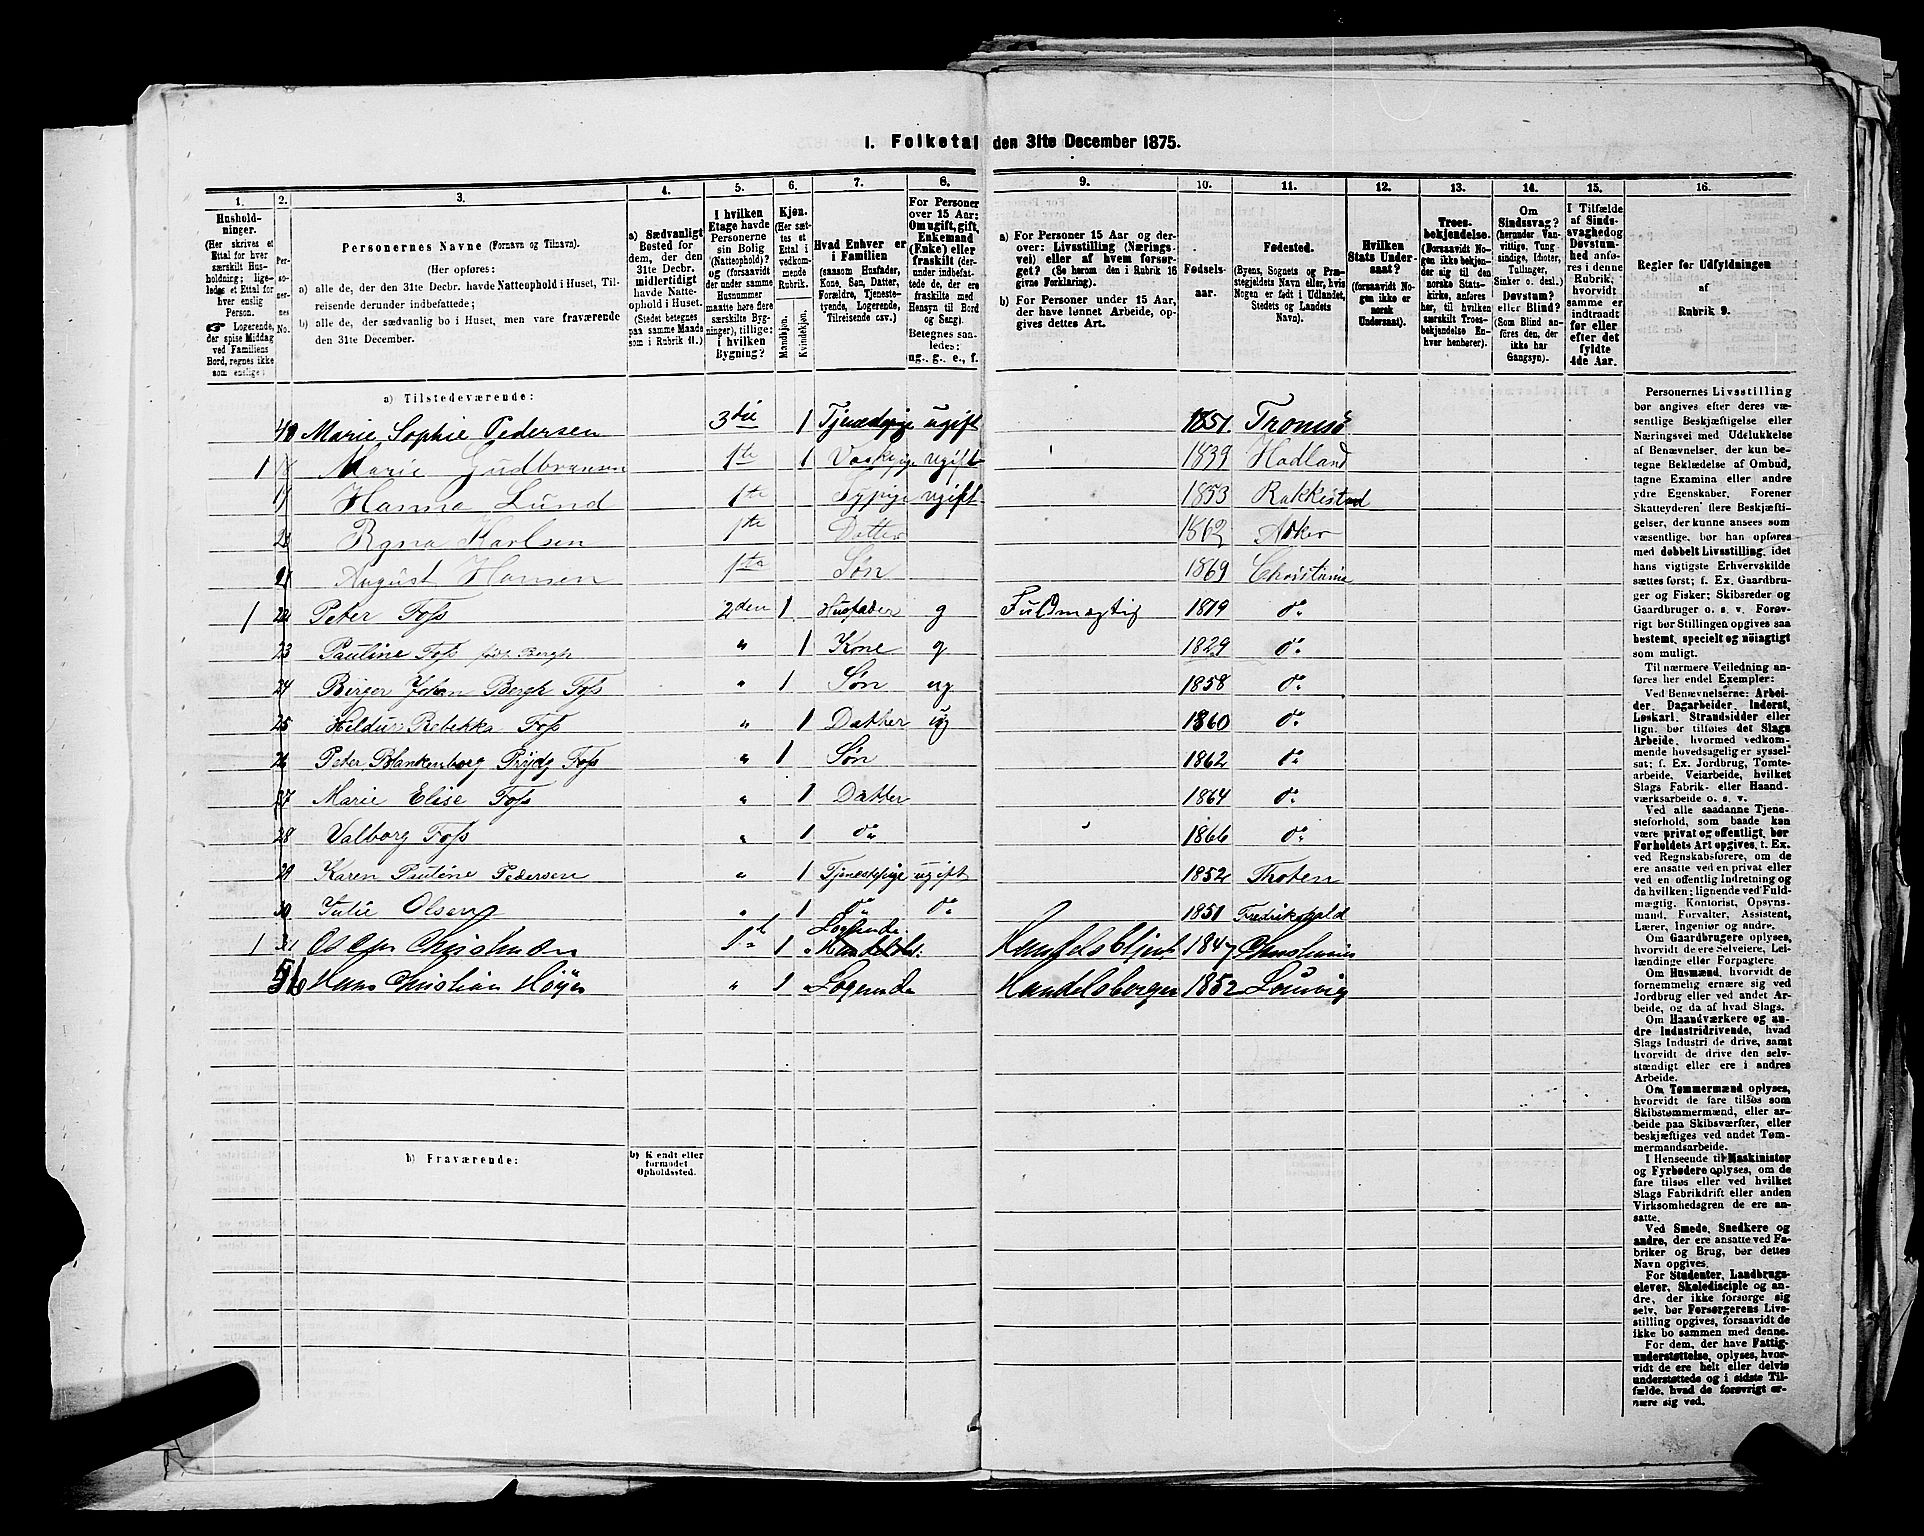 I. Folketal den 31te December 1875.
1. 2. 3. 4. 5. 6. 7. 8. 9. 10. 11. 12. 13. 14. 15. 16.
Husholdninger.
(Her skrives et Ettal for hver særskilt Husholdning; ligeledes et Ettal for hver enslig Person.
☞ Logerende, der spise Middag ved Familiens Bord, regnes ikke som enslige)
Personernes No.
Personernes Navne (Fornavn og Tilnavn).
(Her opføres:
a) alle de, der den 31te Decbr. havde Natteophold i Huset, Tilreisende derunder indbefattede;
b) alle de, der sædvanlig bo i Huset, men vare fraværende den 31te December.
a) Sædvanligt Bosted for dem, der den 31te Decbr. midlertidigt havde Natteophold i Huset. (Stedet betegnes paa samme Maade som i Rubrik 11.)
I hvilken Etage havde Personerne sin Bolig (Natteophold)? og (forsaavidt der under samme Husnummer maatte høre flere særskilte Bygninger), tillige: i hvilken Bygning?
Kjøn. (Her sættes et Ettal i vedkommende Rubrik.)
Mandkjøn. Kvindekjøn.
Hvad Enhver er i Familien
(saasom Husfader, Kone, Søn, Datter, Forældre, Tjenestetyende, Logerende, Tilreisende osv.)
For Personer over 15 Aar: Om ugift, gift, Enkemand (Enke) eller fraskilt (derunder indbefattede de, der ere fraskilte med Hensyn til Bord og Seng).
Betegnes saaledes: ug., g., e., f.
a) For Personer 15 Aar og derover: Livsstilling (Næringsvei) eller af hvem forsørget? (Se herom den i Rubrik 16 givne Forklaring).
b) For Personer under 15 Aar, der have lønnet Arbeide, opgives dettes Art.
Fødselsaar.
Fødested.
(Byens, Sognets og Præstegjeldets Navn eller, hvis Nogen er født i Udlandet, Stedets og Landets Navn).
Hvilken Stats Undersaat?
(forsaavidt Nogen ikke er norsk Undersaat).
Troesbekjendelse.
(Forsaavidt Nogen ikke bekjender sig til den norske Statskirke, anføres her, til hvilken særskilt Troesbekjendelse Enhver henhører).
Om Sindssvag? (herunder Vanvittige, Tungsindige, Idioter, Tullinger, Sinker o. desl.) Døvstum? eller Blind? (Som Blind anføres den, der ikke har Gangsyn).
I Tilfælde af Sindssvaghed og Døvstumhed anføres i denne Rubrik, hvorvidt samme er indtraadt før eller efter det fyldte 4de Aar.
Regler for Udfyldningen af Rubrik 9.
a) Tilstedeværende:
Marie Sophie Pedersen 3die 1 Tjenestepige ugift 1851 Tromsø
1 18 Marie Gudbransen 1te 1 Vaskepige ugift 1839 Hadland
Hanna Lund 1te Sypige ugift 1853 Rakkestad
Ragna Karlsen 1te Datter 1862 Aker
August Hansen 1te Søn 1869 Christiania
1 22 Peter Foss 2den 1 Husfader g Fuldmægtig 1819 do
23 Pauline Foss født Bergh " 1 Kone g 1829 do
24 Birger Johan Bergh Foss " 1 Søn ug 1858 do
25 Rebekka Foss " 1 Datter ug 1860 do
26 Peter Blankenborg Prydz Foss " 1 Søn 1862 do
27 Marie Elise Foss " 1 Datter 1864 do
28 Valborg Foss " 1 do 1866 do
29 Karen Pauline Pedersen " 1 Tjenestepige ugift 1852 Thoten
30 Julie Olsen " 1 do do 1851 Fredrikshald
1 31 1te 1 Logerende Handelsbetjent 1847 Christiania
Hans Christian Höyer " 1 Logerende Handelsborger 1852 Laurvig
b) Fraværende:
b) Kjendt eller formodet Opholdssted.
Personernes Livsstilling bør angives efter deres væsentlige Beskjæftigelse eller Næringsvei med Udelukkelse af Benævnelser, der kun betegne Beklædelse af Ombud, tagne Examina eller andre ydre Egenskaber. Forener Skatteyderen flere Beskjæftigelser, der kunne ansees som væsentlige, bør han opføres med dobbelt Livsstilling, idet hans vigtigste Erhvervskilde sættes først; f. Ex. Gaardbruger og Fisker; Skibsreder og Gaardbruger o. s. v. Forøvrigt bør Stillingen opgives saa bestemt, specielt og nøiagtigt som muligt.
Til nærmere Veiledning anføres her endel Exempler:
Ved Benævnelserne: Arbeider, Dagarbeider, Inderst, Løskarl, Strandsidder eller lign. bør tilføies det Slags Arbeide, hvormed vedkommende hovedsagelig er sysselsat; f. Ex. Jordbrug, Tomtearbeide, Veiarbeide, hvilket Slags Fabrik- eller Haandværksarbeide o. s. v.
Ved alle saadanne Tjenesteforhold, som baade kan være privat og offentligt, bør Forholdets Art opgives, t. Ex. ved Regnskabsførere, om de ere ansatte ved en privat eller ved en offentlig Indretning og da hvilken; lignende ved Fuldmægtig, Kontorist, Opsynsmand, Forvalter, Assistent, Lærer, Ingeniør og andre.
Om Gaardbrugere oplyses, hvorvidt de ere Selveiere, Leilændinge eller Forpagtere.
Om Husmænd, hvorvidt de fornemmelig ernære sig ved Jordbrug eller ved andet Arbeide, og da af hvad Slags.
Om Haandværkere og andre Industridrivende, hvad Slags Industri de drive, samt hvorvidt de drive den selvstændigt eller ere i andres Arbeide.
Om Tømmermænd oplyses, hvorvidt de fare tilsøs som Skibstømmermænd, eller arbeide paa Skibsværfter, eller beskjæftiges ved andet Tømmermandsarbeide.
I Henseende til Maskinister og Fyrbødere oplyses, om de fare tilsøs eller ved hvilket Slags Fabrikdrift eller anden Virksomhedsgren de ere ansatte.
Ved Smede, Snedkere og andre, der ere ansatte ved Fabriker og Brug, bør dettes Navn opgives.
For Studenter, Landbrugselever, Skoledisciple og andre, der ikke forsørge sig selv, bør Forsørgerens Livsstilling opgives, forsaavidt de ikke bo sammen med denne.
For dem, der have Fattigunderstøttelse, oplyses, hvorvidt de ere helt eller delvis understøttede og i sidste Tilfælde, hvad de forøvrigt ernære sig ved.